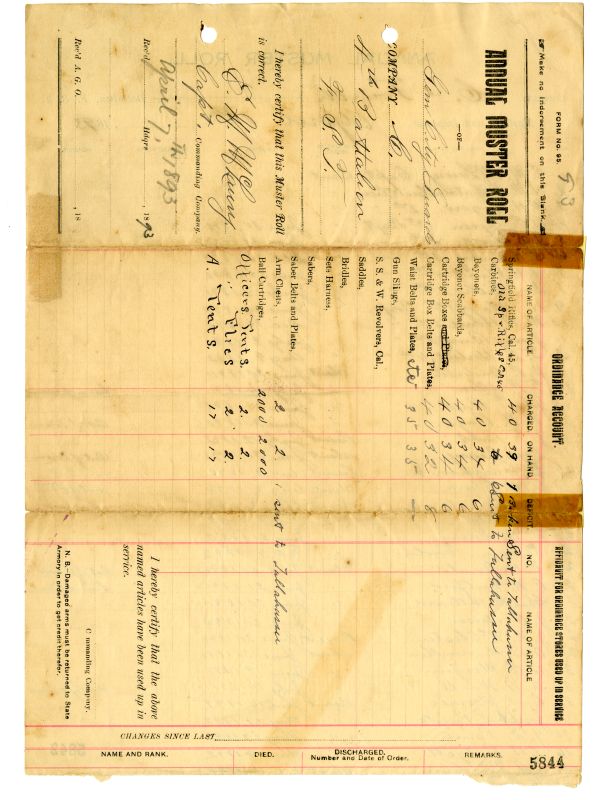 ☞ Make no Indorsement on this Blank.
FORM No. 95.
93
ANNUAL MUSTER ROLL
—OF—
Gem City Guards
COMPANY C.
4th Battalion
F. S. T.
I hereby certify that this Muster Roll
is correct.
Capt. Commanding Company.
Rec'd Hdqrs 1893
April 7,th 1893
Rec'd A. G. O. , 18
ORDINANCE ACCOUNT.
NAME OF ARTICLE CHARGED. ON HAND. DEFICIT.
Springfield Rifles, Cal. 45, 40 39 1 Broken Sent to Tallahassee
Old Spr. Rifles
Carbines, Sent to Tallahassee
Bayonets, 40 34 6
Bayonet Scabbards, 40 34 6
Cartridge Boxes and Plates, 40 34 6
Cartridge Box Belts and Plates, 40 32 8
Waist Belts and Plates, etc 35 35 —
Gun Slings,
S. & W. Revolvers, Cal.,
Saddles,
Bridles,
Sets Harness,
Sabers,
Saber Belts and Plates,
Arm Chests, 2 2. 1 sent to Tallahassee
Ball Cartridges, 2000 2000
Officers Tents. 2. 2.
" Flies 2. 2.
A. Tents. 17 17
AFFIDAVIT FOR ORDINANCE STORES USED UP IN SERVICE
NO. NAME OF ARTICLE
I hereby certify that the above
named articles have been used up in
service.
C mmanding Company.
N. B.—Damaged arms must be returned to State
Armory in order to get credit therefor.
CHANGES SINCE LAST
NAME AND RANK. DIED. DISCHARGED. Number and Date of Order. REMARKS.
5844